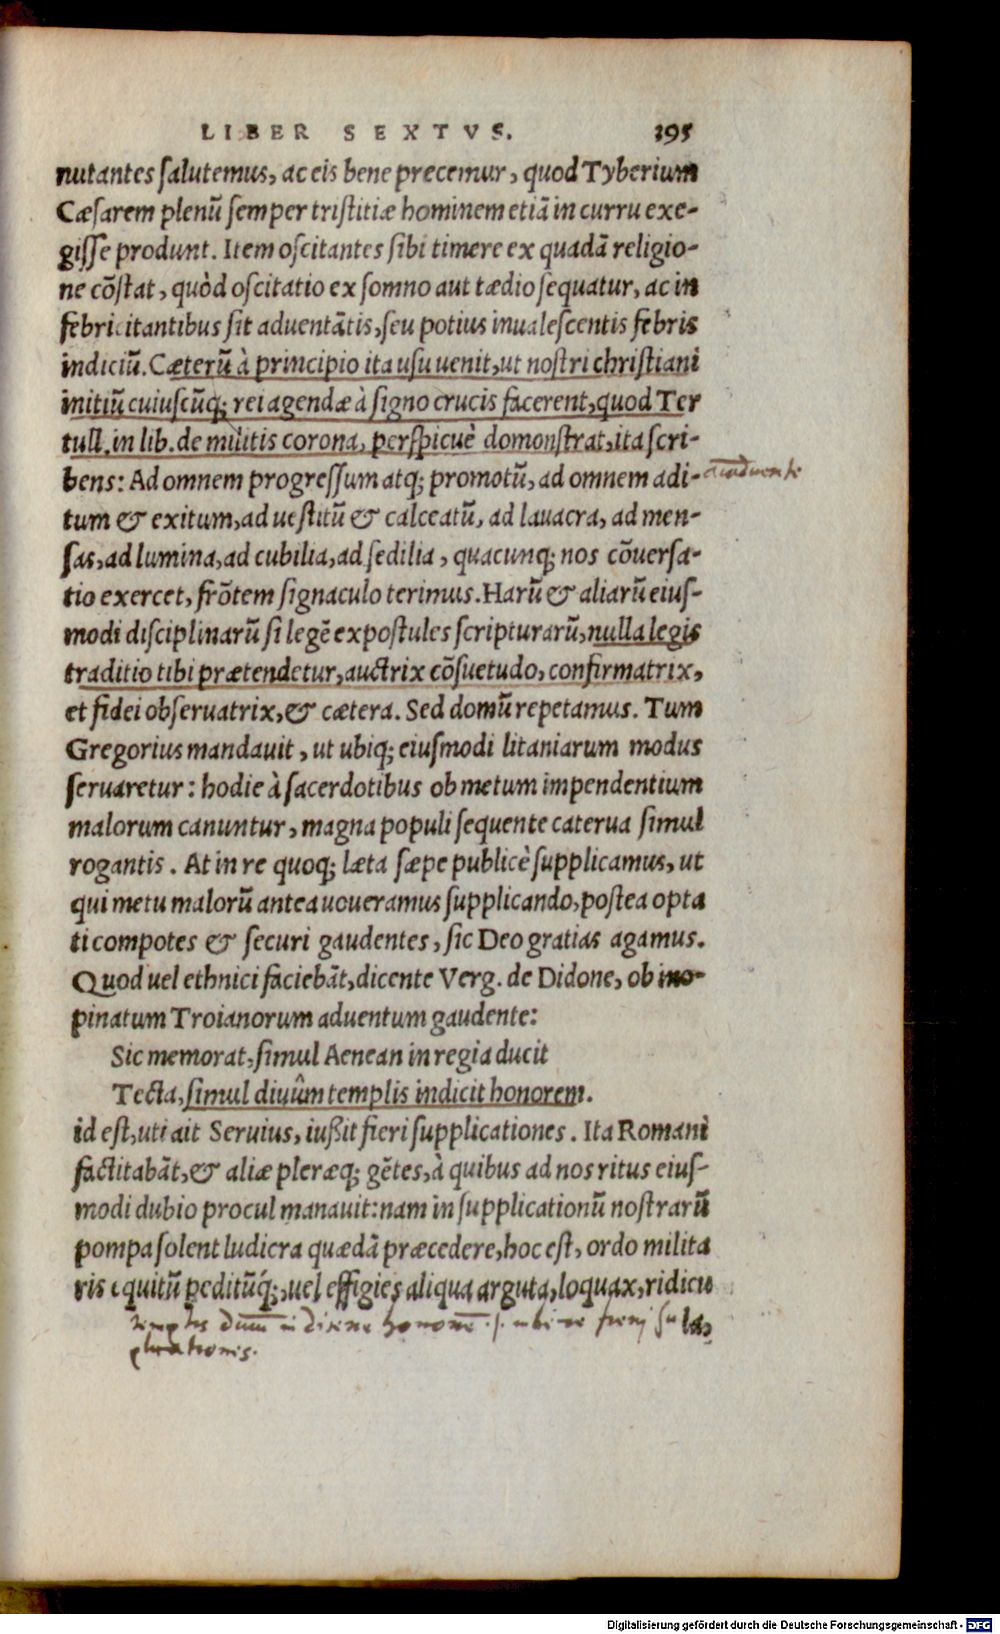 LIBER SEXTVS. 395
nutantes salutemus, ac eis bene precemur, quod Tyberium
Cæsarem plenū semper tristitiæ hominem etiā in curru exe-
gisse produnt. Item oscitantes sibi timere ex quadā religio-
ne cōstat, quòd oscitatio ex somno aut tædio sequatur, ac in
febricitantibus sit aduentātis, seu potius inualescentis febris
indiciū. Cæterū à principio ita usu uenit, ut nostri christiani
initiū cuiuscūq; rei agendæ à signo crucis facerent, quod Ter
tull. in lib. de militis corona, perspicuè domonstrat, ita scri-
bens: Ad omnem progressum atq; promotū, ad omnem adi-
tum & exitum, ad uestitū & calceatū, ad lauacra, ad men-
sas, ad lumina, ad cubilia, ad sedilia, quacunq; nos cōuersa-
tio exercet, frōtem signaculo terimus. Harū & aliarū eius-
modi disciplinarū si legē expostules scripturarū, nulla legis
traditio tibi prætendetur, auctrix cōsuetudo, confirmatrix,
et fidei obseruatrix, & cætera. Sed domū repetamus. Tum
Gregorius mandauit, ut ubiq; eiusmodi litaniarum modus
seruaretur: hodie à sacerdotibus ob metum impendentium
malorum canuntur, magna populi sequente caterua simul
rogantis. At in re quoq; læta sæpe publicè supplicamus, ut
qui metu malorū antea uoueramus supplicando, postea opta
ti compotes & securi gaudentes, sic Deo gratias agamus.
Quod uel ethnici faciebāt, dicente Verg. de Didone, ob ino-
pinatum Troianorum aduentum gaudente:
Sic memorat, simul Aenean in regia ducit
Tecta, simul diuûm templis indicit honorem.
id est, uti ait Seruius, iußit fieri supplicationes. Ita Romani
factitabāt, & aliæ pleræq; gētes, à quibus ad nos ritus eius-
modi dubio procul manauit: nam in supplicationū nostrarū
pompa solent ludicra quædā præcedere, hoc est, ordo milita
ris equitū peditūq́;, uel effigies aliqua arguta, loquax, ridicu
templis honorē fieri su la,
plicationes.